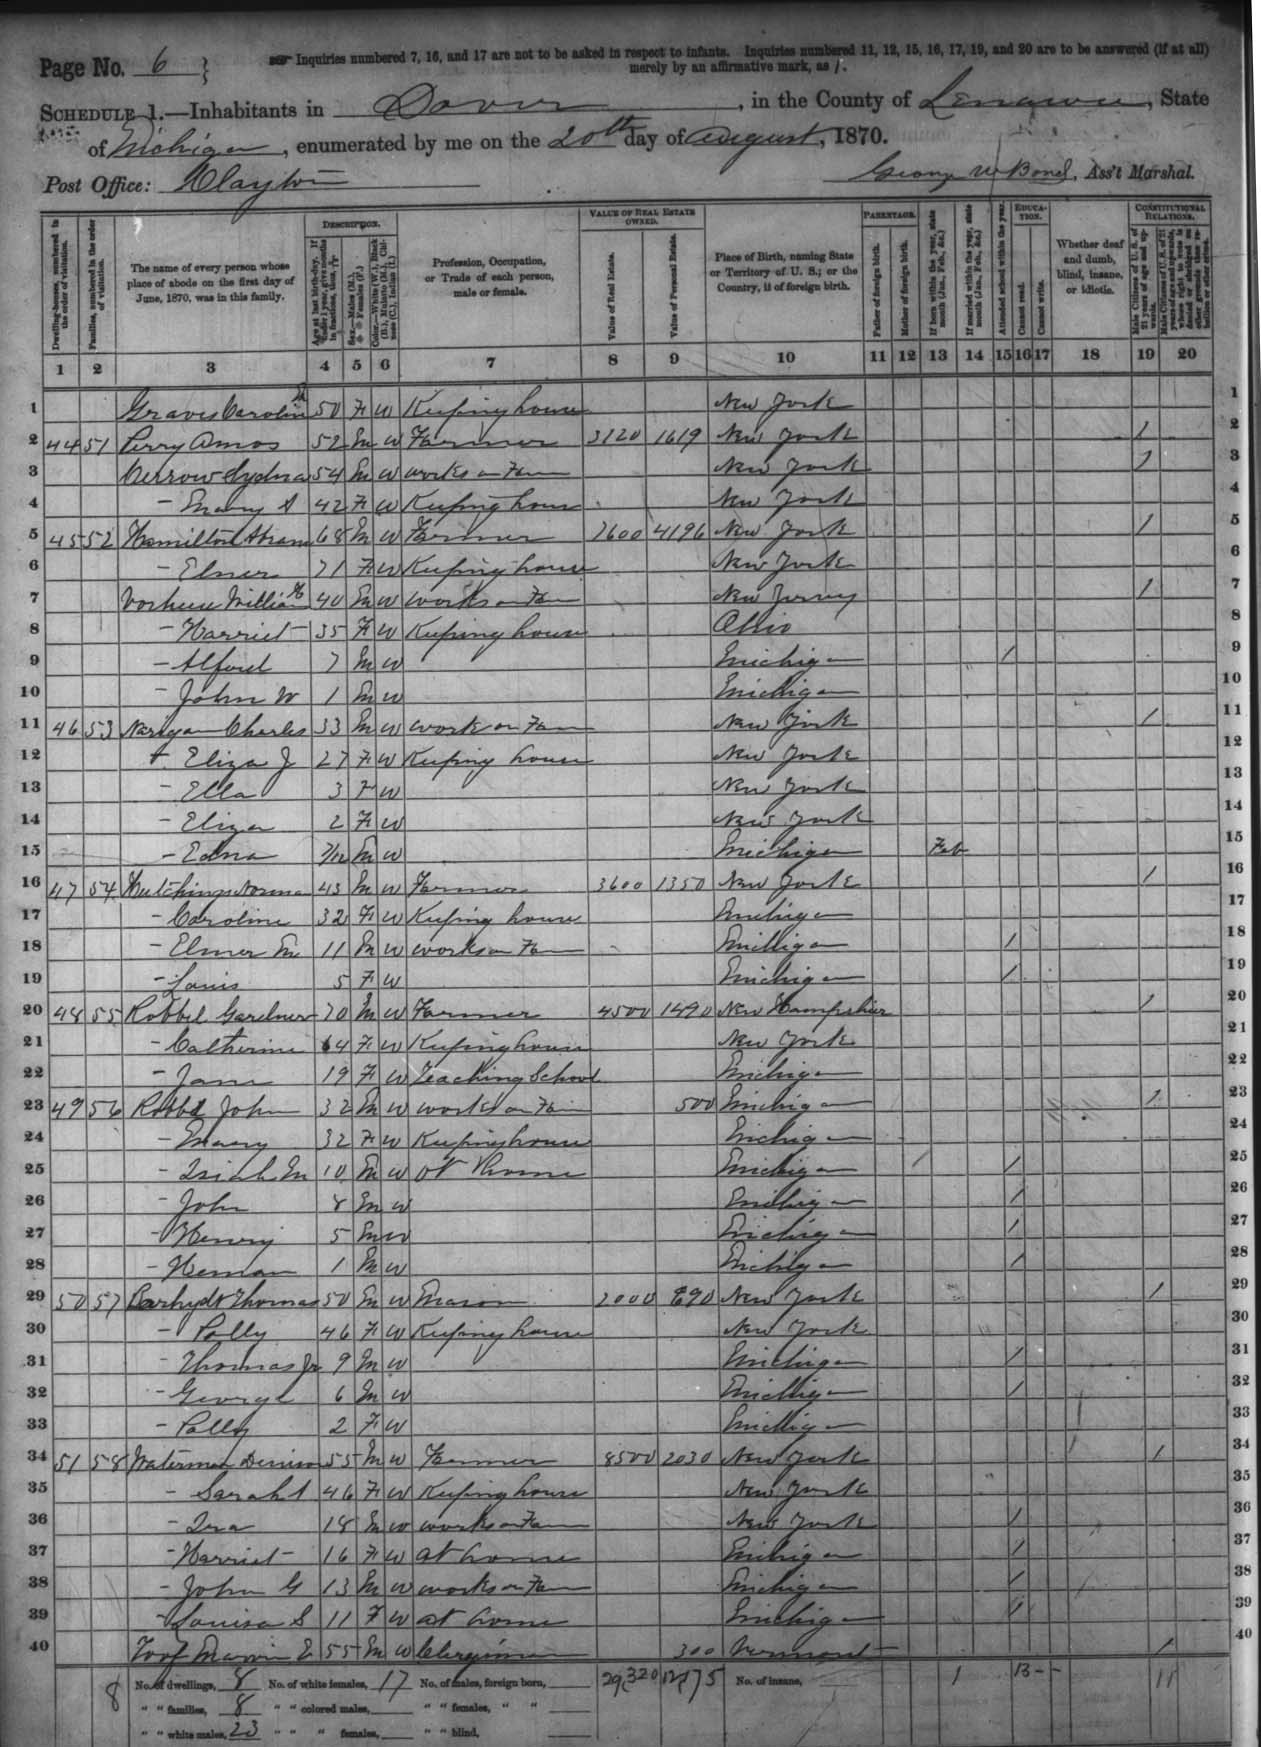 Page No. 6 } Inquiries numbered 7, 16, and 17 are not to be asked in respect to infants. Inquiries numbered 11, 12, 15, 16, 17, 19, and 20 are to be answered (if at all)
merely by an affirmative mark, as /.
SCHEDULE 1.—Inhabitants in Dover, in the County of Lenawee, State
of Michigan, enumerated by me on the 20th day of August, 1870.
Post Office: Clayton George W Bond, Ass't Marshal.
Dwelling-houses, numbered in the order of visitation.
Families, numbered in the order of visitation.
The name of every person whose place of abode on the first day of June, 1870, was in this family.
DESCRIPTION.
Age at last birth-day. If under 1 year, give months in fractions, thus, 3/12
Sex.—Males (M.), Females (F.)
Color.—White (W.), Black (B.), Mulatto (M.), Chinese (C.), Indian (I.)
Profession, Occupation, or Trade of each person, male or female.
VALUE OF REAL ESTATE OWNED.
Value of Real Estate.
Value of Personal Estate.
Place of Birth, naming State or Territory of U. S.; or the Country, if of foreign birth.
PARENTAGE.
Father of foreign birth.
Mother of foreign birth.
If born within the year, state month (Jan., Feb., &c.)
If married within the year, state month (Jan., Feb., &c.)
Attended school within the year.
EDUCATION.
Cannot read.
Cannot write.
Whether deaf and dumb, blind, insane, or idiotic.
CONSTITUTIONAL RELATIONS.
Male Citizens of U. S. of 21 years of age and upwards.
Male Citizens of U. S. of 21 years of age and upwards, whose right to vote is denied or abridged on other grounds than rebellion or other crime.
1 2 3 4 5 6 7 8 9 10 11 12 13 14 15 16 17 18 19 20
1 Graves Carolin 50 F W Keeping house New York 1
2 44 51 Perry Amos 52 M W Farmer 3120 1619 New York / 2
3 54 M W works on Farm New York / 3
4 – Mary A 42 F W Keeping house New York 4
5 45 52 Hamilton Abram 68 M W Farmer 7600 4196 New York / 5
6 – 71 F W Keeping house New York 6
7 Vorheese William H 40 M W works on Farm New Jersey / 7
8 – Harriet 35 F W Keeping house Ohio 8
9 – Alford 7 M W Michigan / 9
10 – John W 1 M W Michigan 10
11 46 53 Charles 33 M W work on Farm New York / 11
12 – Eliza J 27 F W Keeping house New York 12
13 – Ella 3 F W New York 13
14 – Eliza 2 F W New York 14
15 – Edna M W Michigan Feb 15
16 47 54 Hutchings Norman 43 M W Farmer 3600 1350 New York / 16
17 – Caroline 32 F W Keeping house Michigan 17
18 – Elmer M 11 M W works on Farm Michigan / 18
19 – Louis 5 F W Michigan / 19
20 48 55 Gardner 70 M W Farmer 4500 1490 New Hampshire / 20
21 – Catherine 64 F W Keeping house New York 21
22 – Jane 19 F W Teaching School Michigan 22
23 49 56 John 32 M W works on Farm 500 Michigan / 23
24 – Emery 32 F W Keeping house Michigan 24
25 – M 10 M W at home Michigan / 25
26 – John 8 M W Michigan / 26
27 – Henry 5 M W Michigan / 27
28 – Heman 1 M W Michigan / 28
29 50 57 Barhydt Thomas 50 M W Mason 2000 690 New York / 29
30 – Polly 46 F W Keeping house New York 30
31 – Thomas Jr 9 M W Michigan / 31
32 – George 6 M W Michigan / 32
33 – Polly 2 F W Michigan 33
34 51 58 Waterman Denison 55 M W Farmer 8500 2030 New York / 34
35 – Sarah A 46 F W Keeping house New York 35
36 – Ira 18 M W works on Farm New York / 36
37 – Harriet 16 F W at home Michigan / 37
38 – John G 13 M W works on Farm Michigan / 38
39 – Louisa S 11 F W at home Michigan / 39
40 Marvin E 55 M W Clergyman 300 Vermont / 40
8 No. of dwellings, 8 No. of white females, 17 No. of males, foreign born, 29,320 No. of insane, 1 13 – – 11
" " families, 8 " " colored males, " " females, " "
" " white males, 23 " " " females, " " blind,